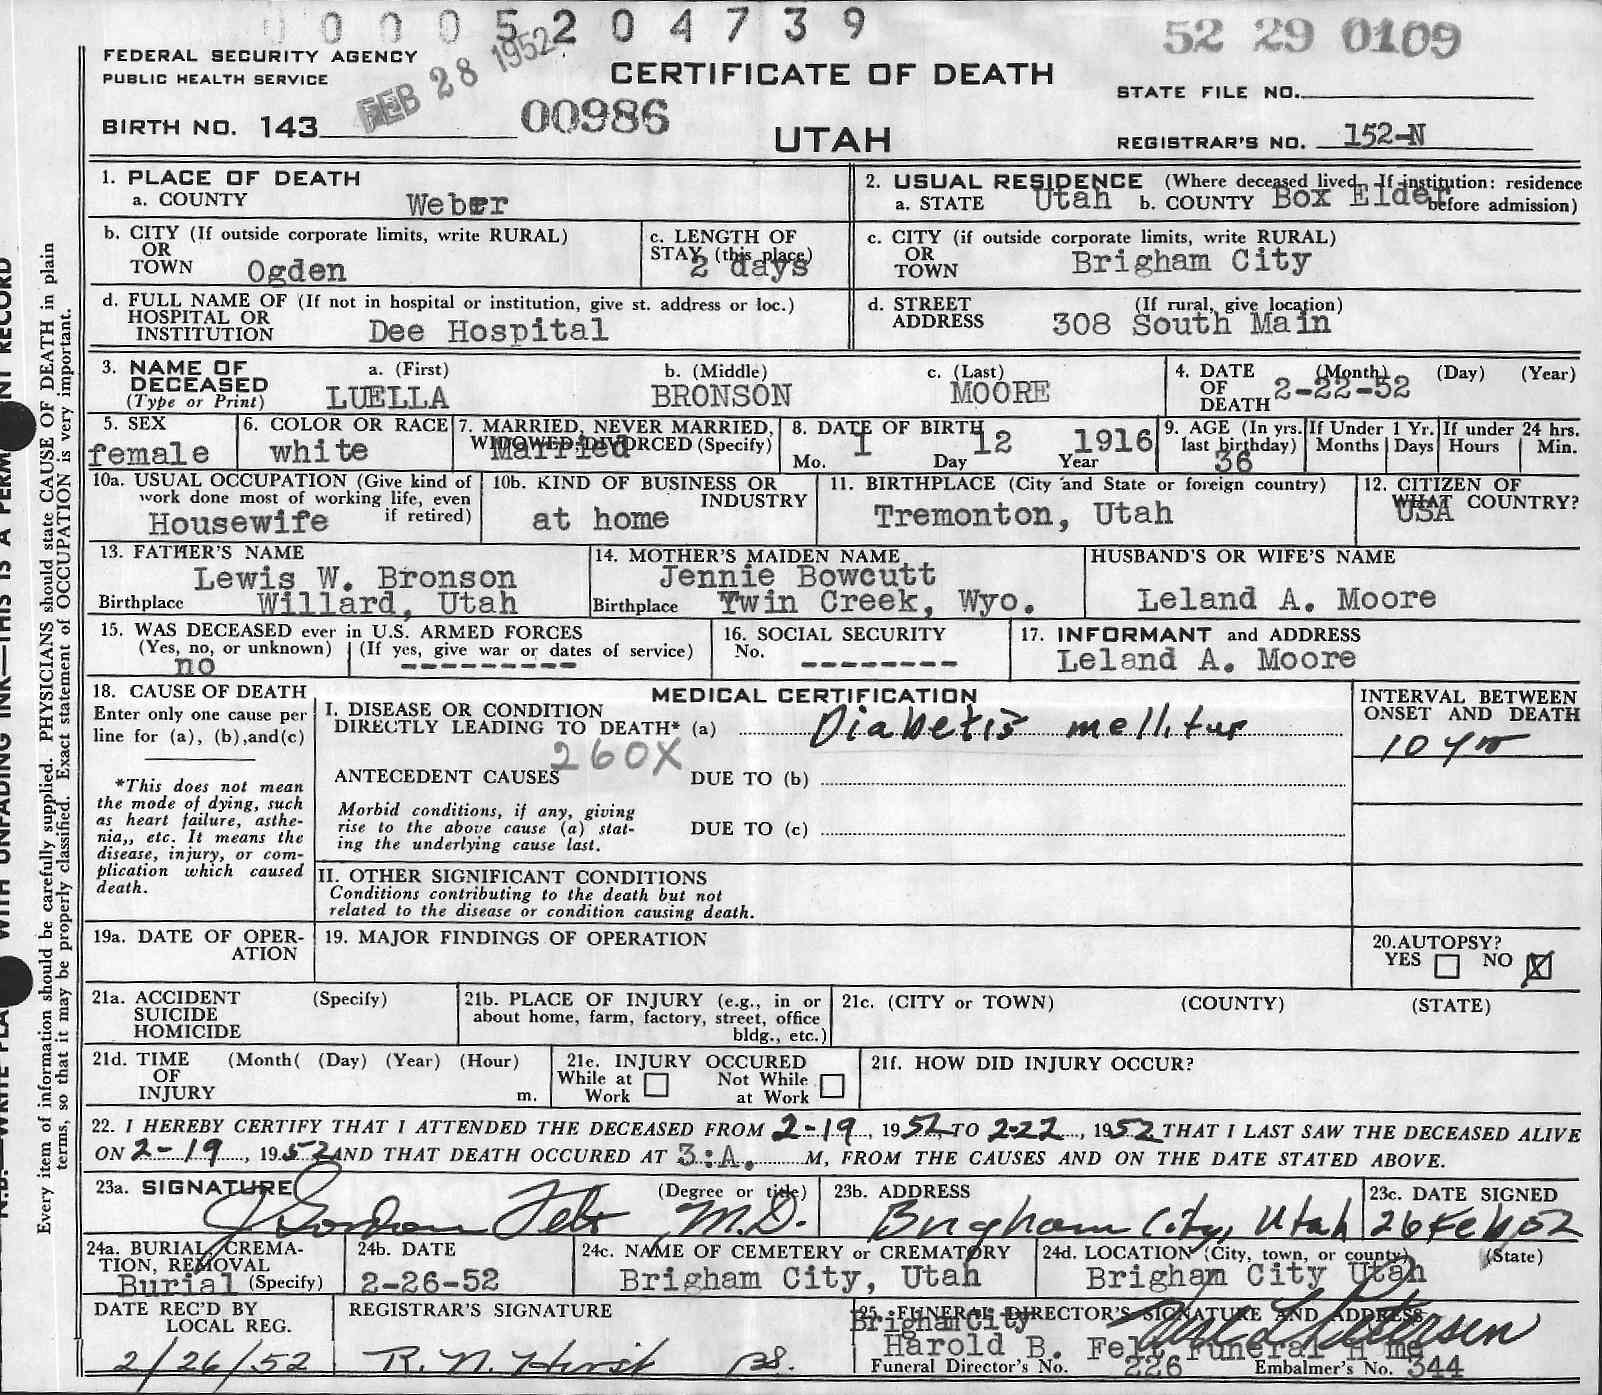 0 0 0 5 2 0 4 7 3 9
52 29 0109
FEDERAL SECURITY AGENCY
PUBLIC HEALTH SERVICE
FEB 28 1952
CERTIFICATE OF DEATH
STATE FILE NO.
BIRTH NO. 143
00986
UTAH
REGISTRAR'S NO. 152-N
1. PLACE OF DEATH
a. COUNTY Weber
2. USUAL RESIDENCE (Where deceased lived. If institution: residence before admission)
a. STATE Utah b. COUNTY Box Elder
b. CITY (If outside corporate limits, write RURAL)
OR
TOWN Ogden
c. LENGTH OF
STAY (this place)
2 days
c. CITY (if outside corporate limits, write RURAL)
OR
TOWN Brigham City
d. FULL NAME OF (If not in hospital or institution, give st. address or loc.)
HOSPITAL OR
INSTITUTION Dee Hospital
d. STREET (If rural, give location)
ADDRESS 308 South Main
3. NAME OF
DECEASED
(Type or Print)
a. (First) b. (Middle) c. (Last)
LUELLA BRONSON MOORE
4. DATE (Month) (Day) (Year)
OF
DEATH 2-22-52
5. SEX
female
6. COLOR OR RACE
white
7. MARRIED, NEVER MARRIED,
WIDOWED, DIVORCED (Specify)
Married
8. DATE OF BIRTH
Mo. 1 Day 12 Year 1916
9. AGE (In yrs.
last birthday)
36
If Under 1 Yr.
Months Days
If under 24 hrs.
Hours Min.
10a. USUAL OCCUPATION (Give kind of
work done most of working life, even
if retired)
Housewife
10b. KIND OF BUSINESS OR
INDUSTRY
at home
11. BIRTHPLACE (City and State or foreign country)
Tremonton, Utah
12. CITIZEN OF
WHAT COUNTRY?
USA
13. FATHER'S NAME
Lewis W. Bronson
Birthplace Willard, Utah
14. MOTHER'S MAIDEN NAME
Jennie Bowcutt
Birthplace Twin Creek, Wyo.
HUSBAND'S OR WIFE'S NAME
Leland A. Moore
15. WAS DECEASED ever in U.S. ARMED FORCES
(Yes, no, or unknown) (If yes, give war or dates of service)
no ---------
16. SOCIAL SECURITY
No. --------
17. INFORMANT and ADDRESS
Leland A. Moore
18. CAUSE OF DEATH
Enter only one cause per
line for (a), (b),and(c)
*This does not mean
the mode of dying, such
as heart failure, asthe-
nia,, etc. It means the
disease, injury, or com-
plication which caused
death.
MEDICAL CERTIFICATION
I. DISEASE OR CONDITION
DIRECTLY LEADING TO DEATH* (a) Diabetis mellitus
260X
ANTECEDENT CAUSES DUE TO (b)
Morbid conditions, if any, giving
rise to the above cause (a) stat-
ing the underlying cause last.
DUE TO (c)
INTERVAL BETWEEN
ONSET AND DEATH
10 yrs
II. OTHER SIGNIFICANT CONDITIONS
Conditions contributing to the death but not
related to the disease or condition causing death.
19a. DATE OF OPER-
ATION
19. MAJOR FINDINGS OF OPERATION
20.AUTOPSY?
YES NO X
21a. ACCIDENT (Specify)
SUICIDE
HOMICIDE
21b. PLACE OF INJURY (e.g., in or
about home, farm, factory, street, office
bldg., etc.)
21c. (CITY or TOWN) (COUNTY) (STATE)
21d. TIME (Month( (Day) (Year) (Hour)
OF
INJURY m.
21e. INJURY OCCURED
While at Work Not While at Work
21f. HOW DID INJURY OCCUR?
22. I HEREBY CERTIFY THAT I ATTENDED THE DECEASED FROM 2-19, 1952, TO 2-22, 1952 THAT I LAST SAW THE DECEASED ALIVE
ON 2-19, 1952 AND THAT DEATH OCCURED AT 3:A. M, FROM THE CAUSES AND ON THE DATE STATED ABOVE.
23a. SIGNATURE (Degree or title)
J Gordon Felt M.D.
23b. ADDRESS
Brigham City, Utah
23c. DATE SIGNED
26 Feb 52
24a. BURIAL, CREMA-
TION, REMOVAL
Burial (Specify)
24b. DATE
2-26-52
24c. NAME OF CEMETERY or CREMATORY
Brigham City, Utah
24d. LOCATION (City, town, or county) (State)
Brigham City Utah
DATE REC'D BY
LOCAL REG.
2/26/52
REGISTRAR'S SIGNATURE
R. N. Hirst
25. FUNERAL DIRECTOR'S SIGNATURE AND ADDRESS
Brigham City
Harold B. Felt Funeral H me
Funeral Director's No. 226 Embalmer's No. 344
Every item of information should be carefully supplied. PHYSICIANS should state CAUSE OF DEATH in plain
terms, so that it may be properly classified. Exact statement of OCCUPATION is very important.
WITH UNFADING INK—THIS IS A PERM NT RECORD